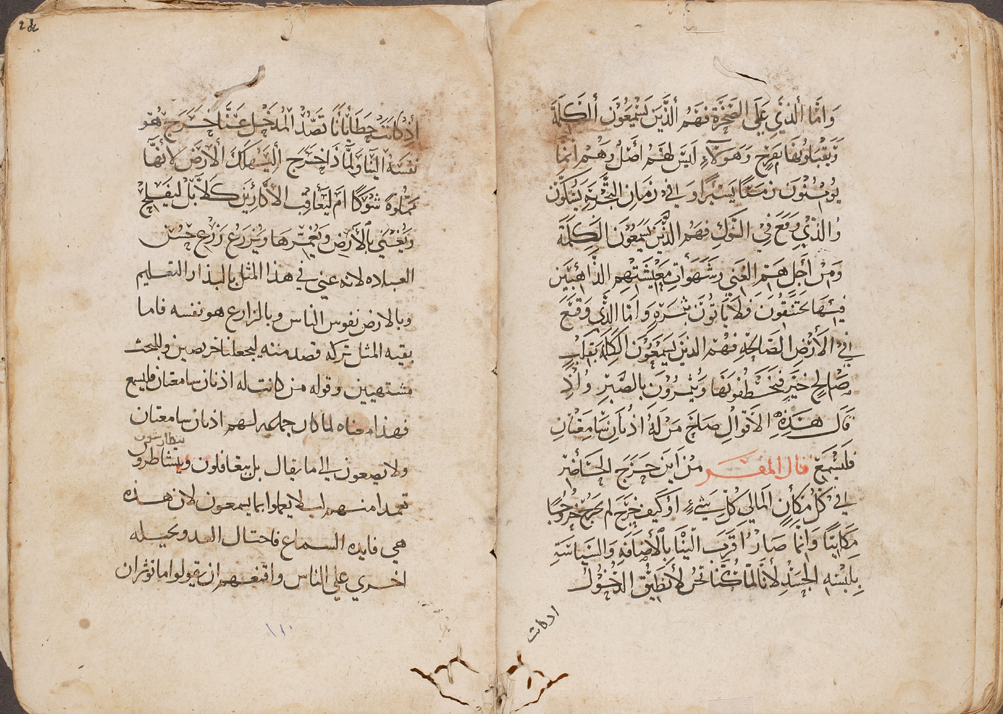 وَامَّا الَّذِي عَلَى الصَّخْرَةِ فَهُمُ الَّذِينَ يَسْمَعُونَ الْكَلِمَةَ
وَيَقْبَلُونَهَا بِفَرَحٍ وَهَوُلَاءِ لَيْسَ لَهُمْ اصْلٌ وَهُمْ انَّمَا
يُومِنُونَ زَمَانًا يَسِيرًا وَفِي زَمَانِ التَّجْرِبَةِ يَشُكُّونَ
وَالَّذِي وَقَعَ فِي الشَّوْكِ فَهُمُ الَّذِينَ يَسْمَعُونَ الْكَلِمَةَ
وَمِنْ اجْلِ هَمِّ الْغِنَي وَشَهَوَاتِ مَعِيشَتِهِمِ الذَّاهِبِينَ
فِيهَا يَخْتَنِقُونَ وَلَا يَاتُونَ بِثَمَرَةٍ وَامَّا الَّذِي وَقَعَ
فِي الْأَرْضِ الصَّالِحَةِ فَهُمُ الَّذِينَ يَسْمَعُونَ الْكَلِمَةَ بِقَلْبٍ
صَالِحٍ خَيِّرٍ فَيَحْفَظُونَهَا وَيُثْمِرُونَ بِالصَّبْرِ وَاذْ
قَالَ هَذِهِ الْأَقْوَالَ صَاحَ مَنْ لَهُ اذُنَانِ سَامِعَتَانِ
فَلْيَسْمَعْ قال المفسر مِنْ ايْنَ خَرَجَ الْحَاضِرُ
فِي كُلِّ مَكَانٍ الْمَالِي كُلَّ شَيْءٍ اوْ كَيْفَ خَرَجَ لَمْ يَخْرُجْ خُرُوجًا
مَكَانِيًّا وَانَّمَا صَارَ اقْرَبَ الَيْنَا بِالْأِضَافَةِ وَالسِّيَاسَةِ
بِلُبْسِهِ الْجَسَدَ لِأَنَّا لَمَّا كُنَّا نَحْنُ لَا نُطِيقُ الدُّخُولَ
اذ كانت
اذْ كَانَتْ خَطَايَانَا تَصُدُّ الْمَدْخَلَ عَنَّا خَرَجَ هُوَ
نَفْسُهُ الَيْنَا وَلِمَاذَا خَرَجَ الِيُهْلِكَ الْأَرْضَ لِأَنَّهَا
مَمْلُوةٌ شَوْكًا امْ لِيُعَاقِبَ الْأَكَّارِينَ كَلَّا بَلْ لِيَفْلَحَ
وَيَعْتَنِي بِالْأَرْضِ وَيُعَمِّرَهَا وَيَزْرَعَ زَرْعَ حُسْنِ
العباده لانه عني في هذا المثل بالبذار التعليم
وبالارض نفوس الناس وبالزارع هو نفسه فاما
بقيه المثل تركه قصد منه ليجعلنا حريصين وللبحث
مشتهيين وقوله من كانت له اذنان سامعتان فليسمع
فهذا معناه لما كان جملهم لهم اذنان سامعتان
ولا يصغون الى ما يقال بل يتغافلون ويتشاطرون
تعمدا منهم لئلا يعملوا بما يسمعون لان هذه
هي فايده السماع فاحتال العدو بحيله
اخري علي الناس واقنعهم ان يقولوا ما نوثر ان